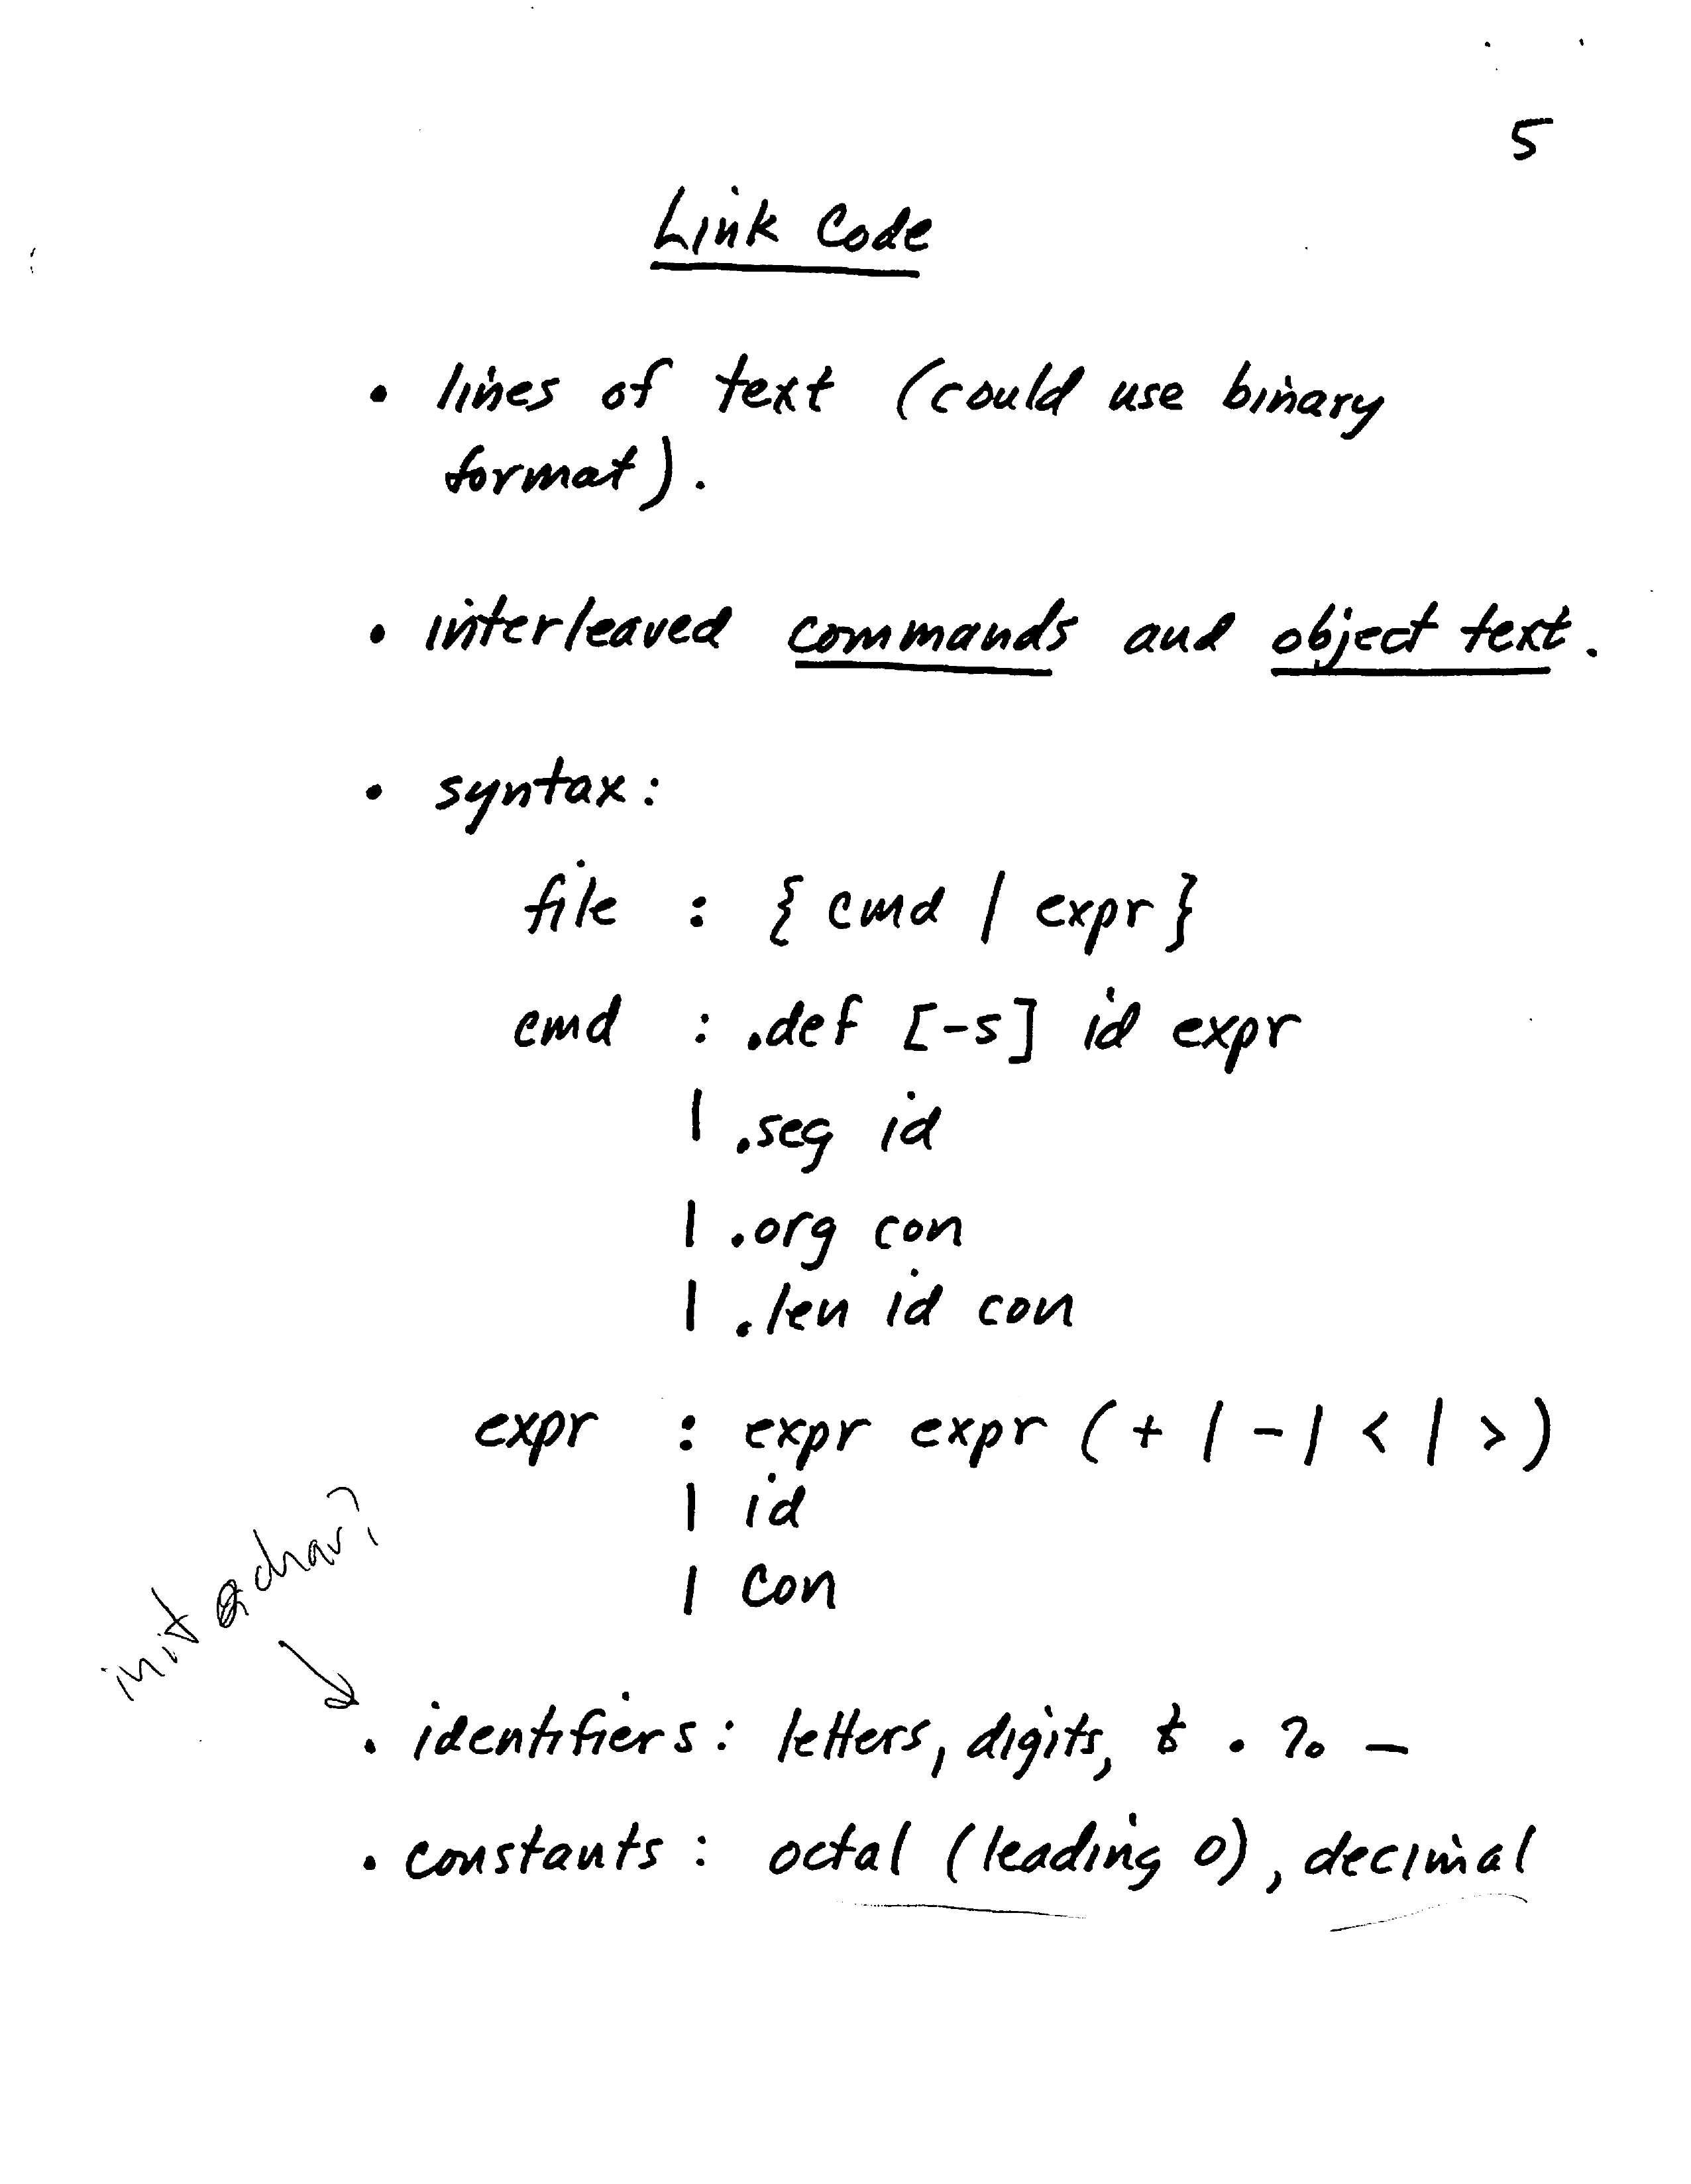 5
Link Code
• lines of text (could use binary
format).
• interleaved commands and object text.
• syntax:
file : { cmd | expr }
cmd : .def [-s] id expr
| .seg id
| .org con
| .len id con
expr : expr expr ( + | - | < | > )
| id
| con
init char?
• identifiers: letters, digits, . % _
• constants: octal (leading 0), decimal